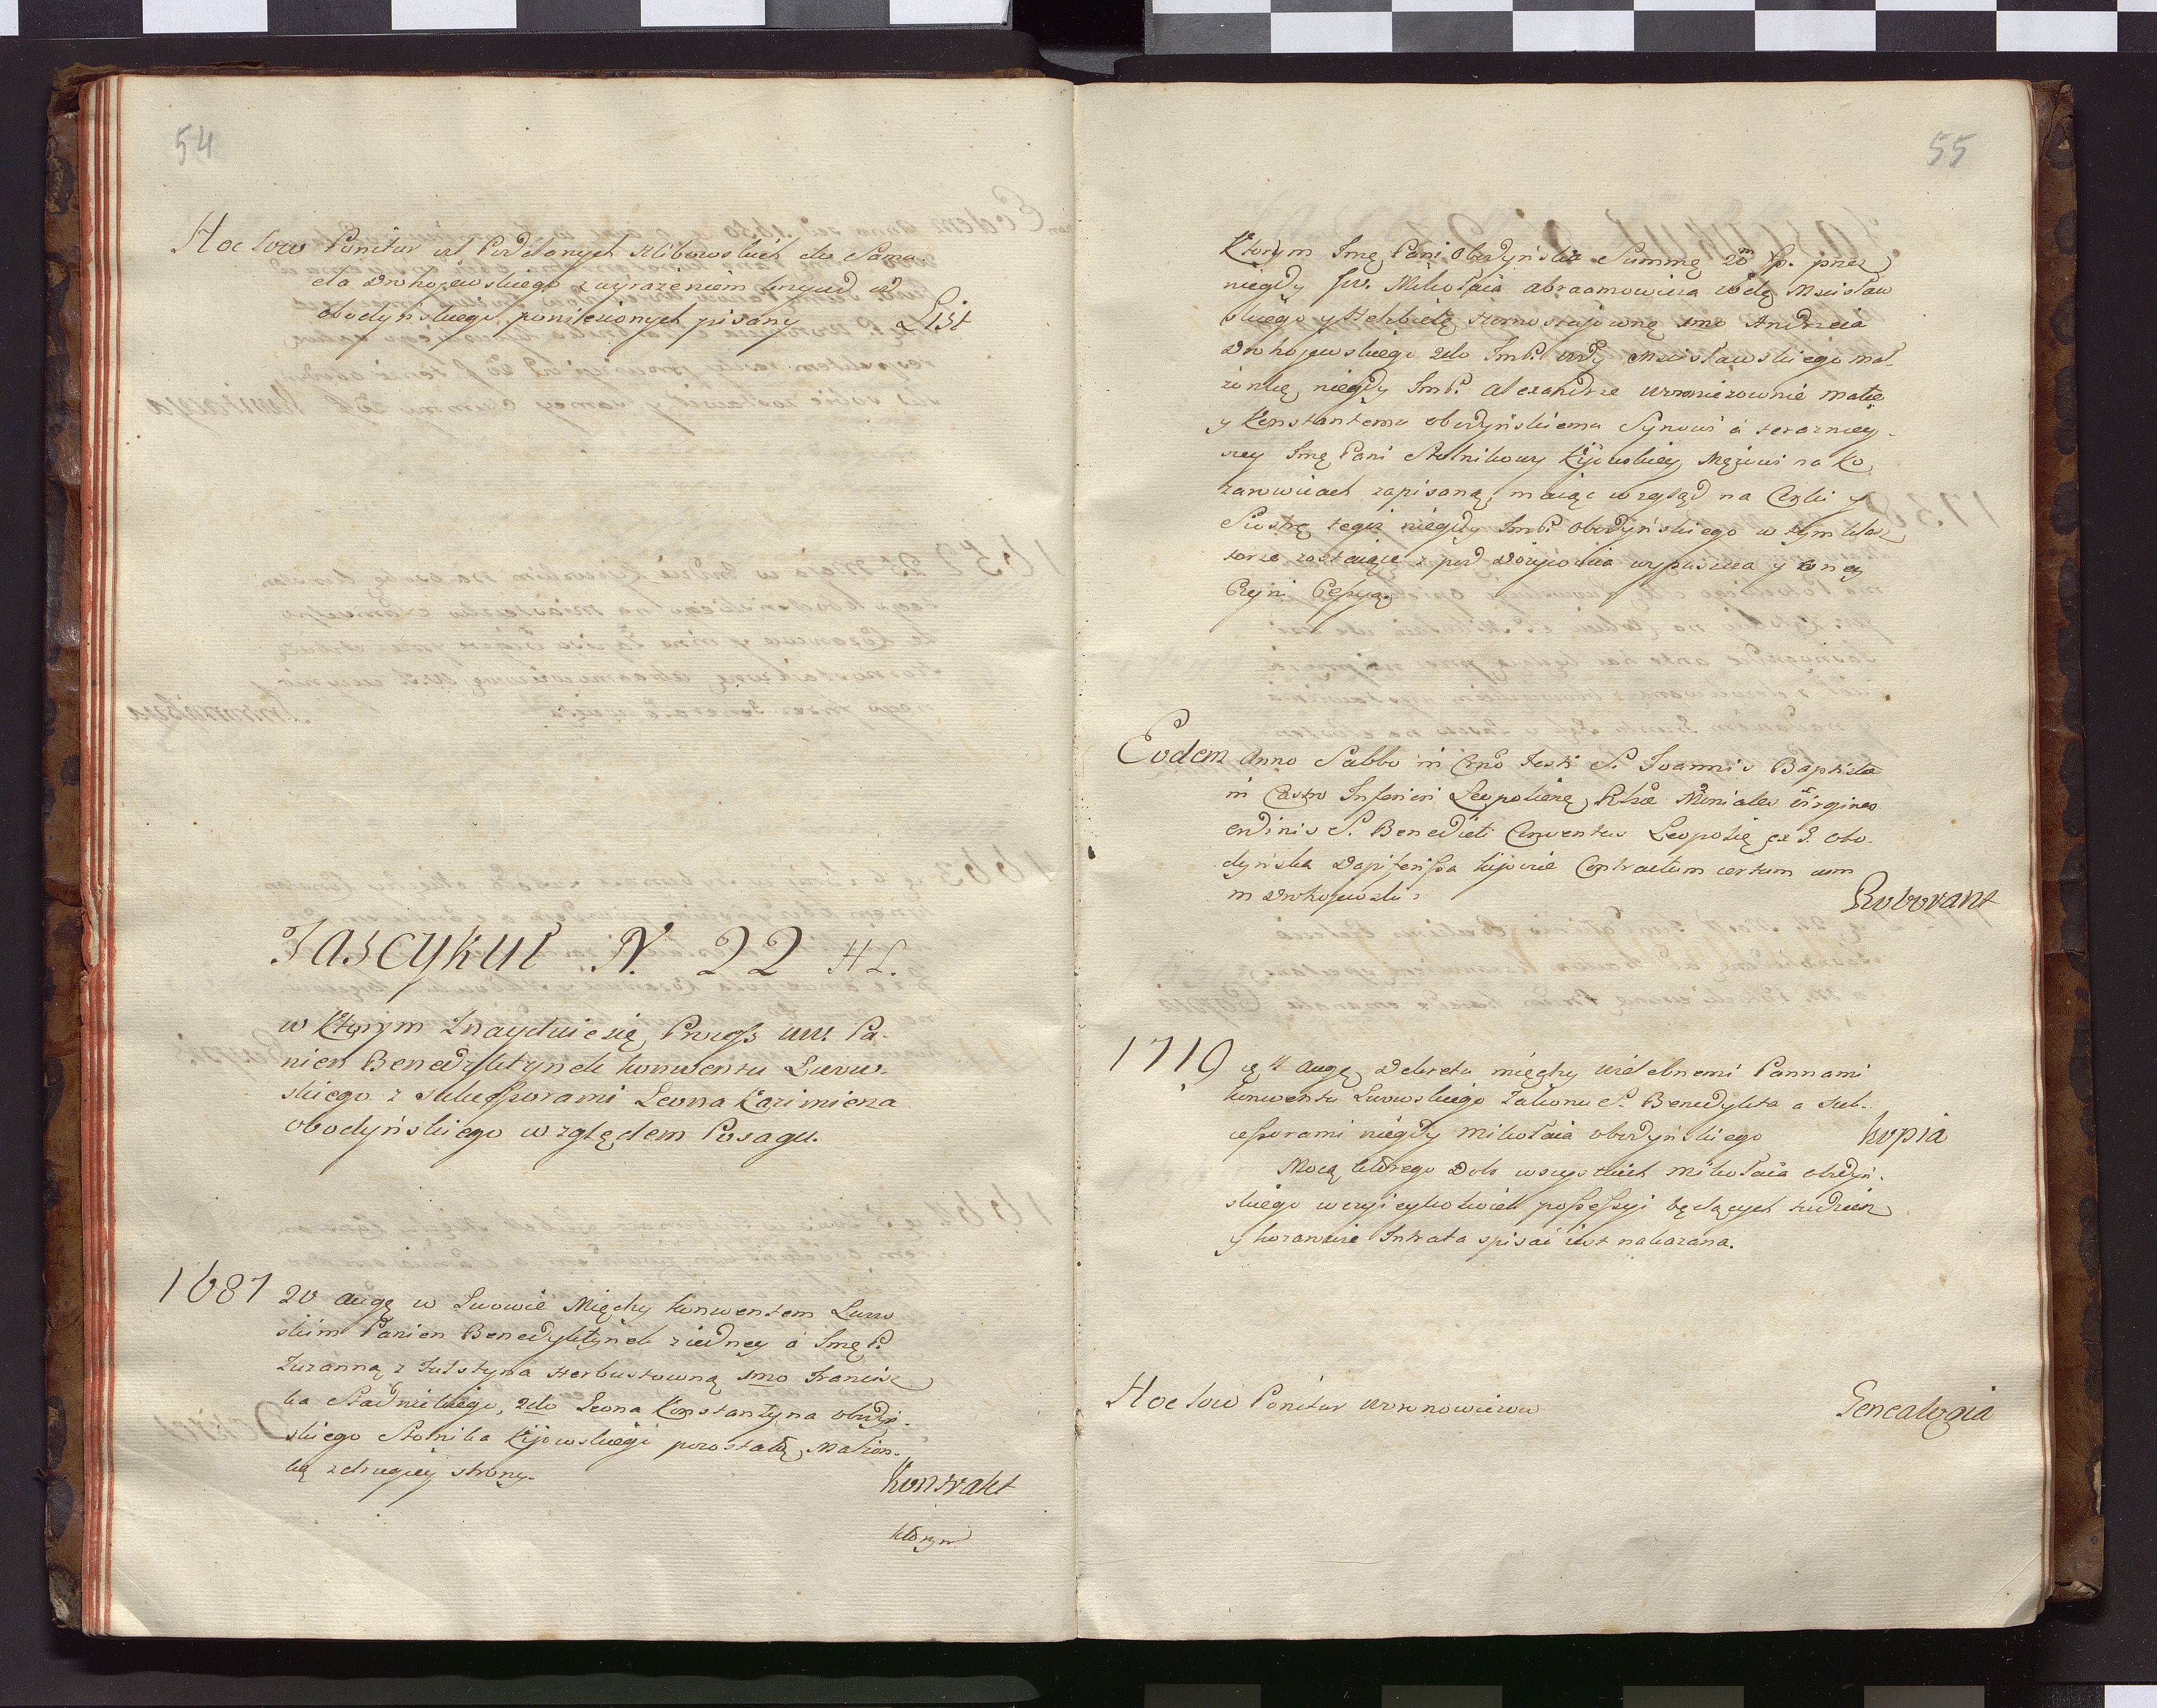 54
Hoc low Ponitur od Poddanych Hlibowskich do Samu
ela Drohojewskiego z wyrażeniem krzywd od
Obodyńskiego poniesionych pisany List
Fascykuł N. 22 HL.
w Ktorym Znayduie się Process WW. Pa-
nien Benedyktynek konwentu Lwow-
skiego z sukcessorami Leona Kazimierza
Obodyńskiego względem Posagu.
1687 20 Augę w Lwowie Między konwentem Lwow
skim Panien Benedyktynek z iedney a Jmę P.
Zuzanną z Fulstyna Herbustowną 1mo Francisz
ka Stadnickiego, 2do Leona Konstantyna Obodyń-
skiego Stolnika Kijowskiego pozostałą Małżon-
ką z drugiey strony. Kontrakt
ktorym
55
Ktorym Jmę Pani Obodyńska Summę 20m fp. przez
niegdy Jw. Mikołaia Abraamowicza Wdę Mscisław
skiego y Helzbietę Hornostajowną 1mo Andrzeia
Drohojewskiego 2do JmP. Wdy Mscisławskiego mał-
żonkę, niegdy JmP. Alexandrze Woroniczownie matce
y Konstantemu Obodyńskiemu Synowi a terazniey-
szey Jmę Pani Stolnikowy Kijowskiey Mężowi na Ko
zarowicach zapisaną, maiąc wzgląd na Corki y
Siostrę tegoż niegdy JmP. Obodyńskiego w tym klasz
torze zostaiące z pod dożywocia wypuszcza y oney
Czyni Cessyą.
Eodem Anno Sabbo in Crno Festi S. Joannis Baptistæ
in Castro Inferiori Leopolienę Rlsæ Moniales Virgines
ordinis S. Benedicti Conventus Leopolię et G. Obo-
dyńska Dapiferissa Kijovię Contractum certum cum
m Drohojewski Roborant
1710 ę 4 Augę Dekretu między Wielebnemi Pannami
konwentu Lwowskiego Zakonu S. Benedykta a Suk-
cessorami niegdy Mikołaia Obodyńskiego kopia
Mocą ktorego Dobr wszystkich Mikołaia Obodyń-
skiego w czyieykolwiek possessyi będących tudziesz
y kozarowice Intrata spisać iest nakazana.
Hoc low Ponitur Woronowiczow Genealogia